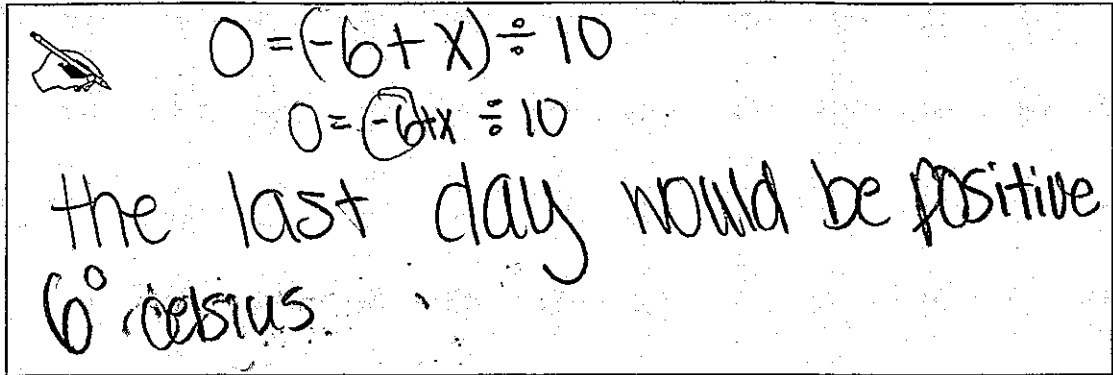 0=(-6+x)÷10
0=-6+x ÷10
the last day would be positive
6° celsius.